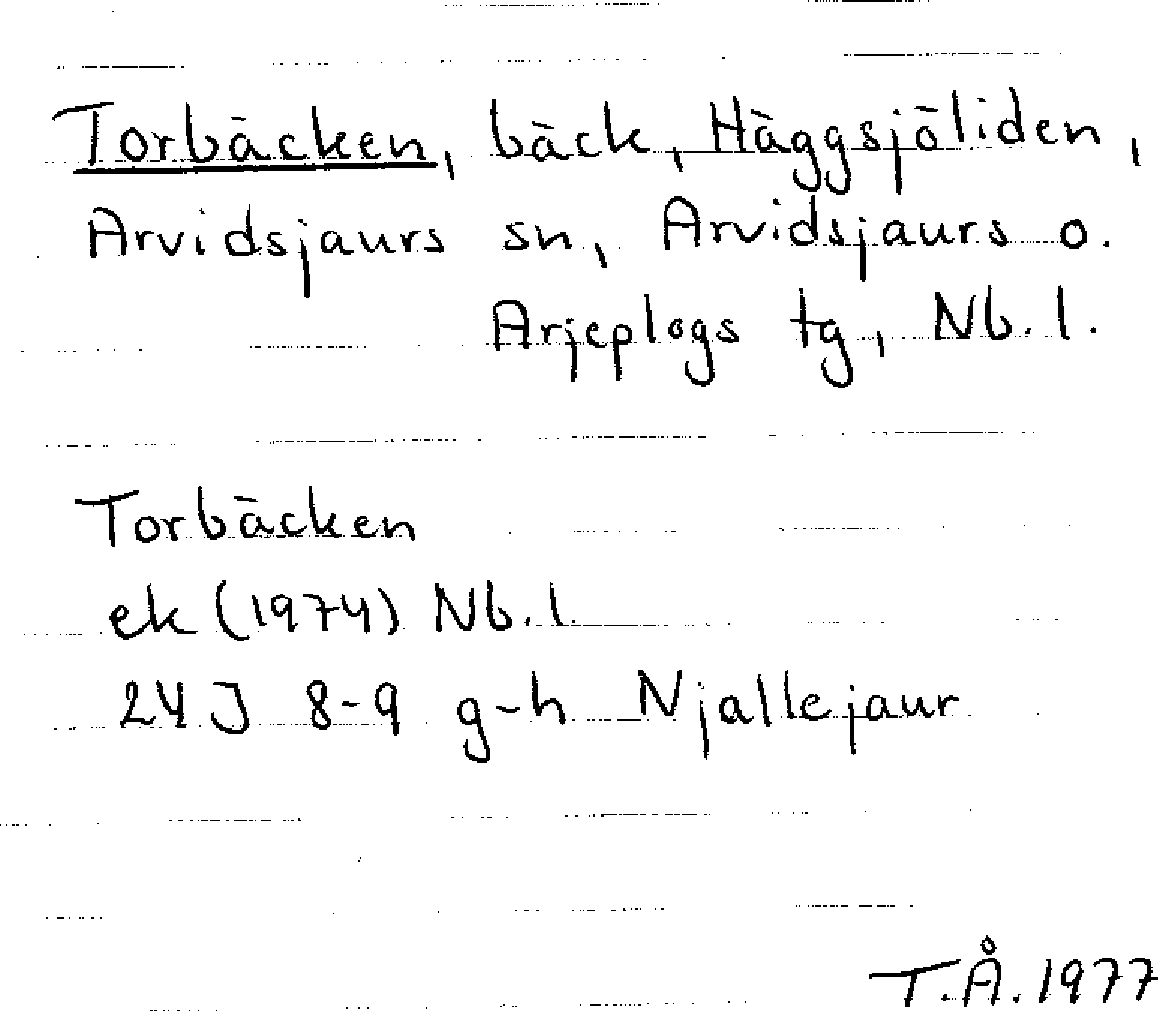 Torbäcken, bäck, Häggsjöliden,
Arvidsjaurs sn, Arvidsjaurs o.
Arjeplogs tg, Nb. l.
Torbäcken
ek (1974) Nb. l.
24 J 8-9 g-h Njallejaur
T.Å. 1977